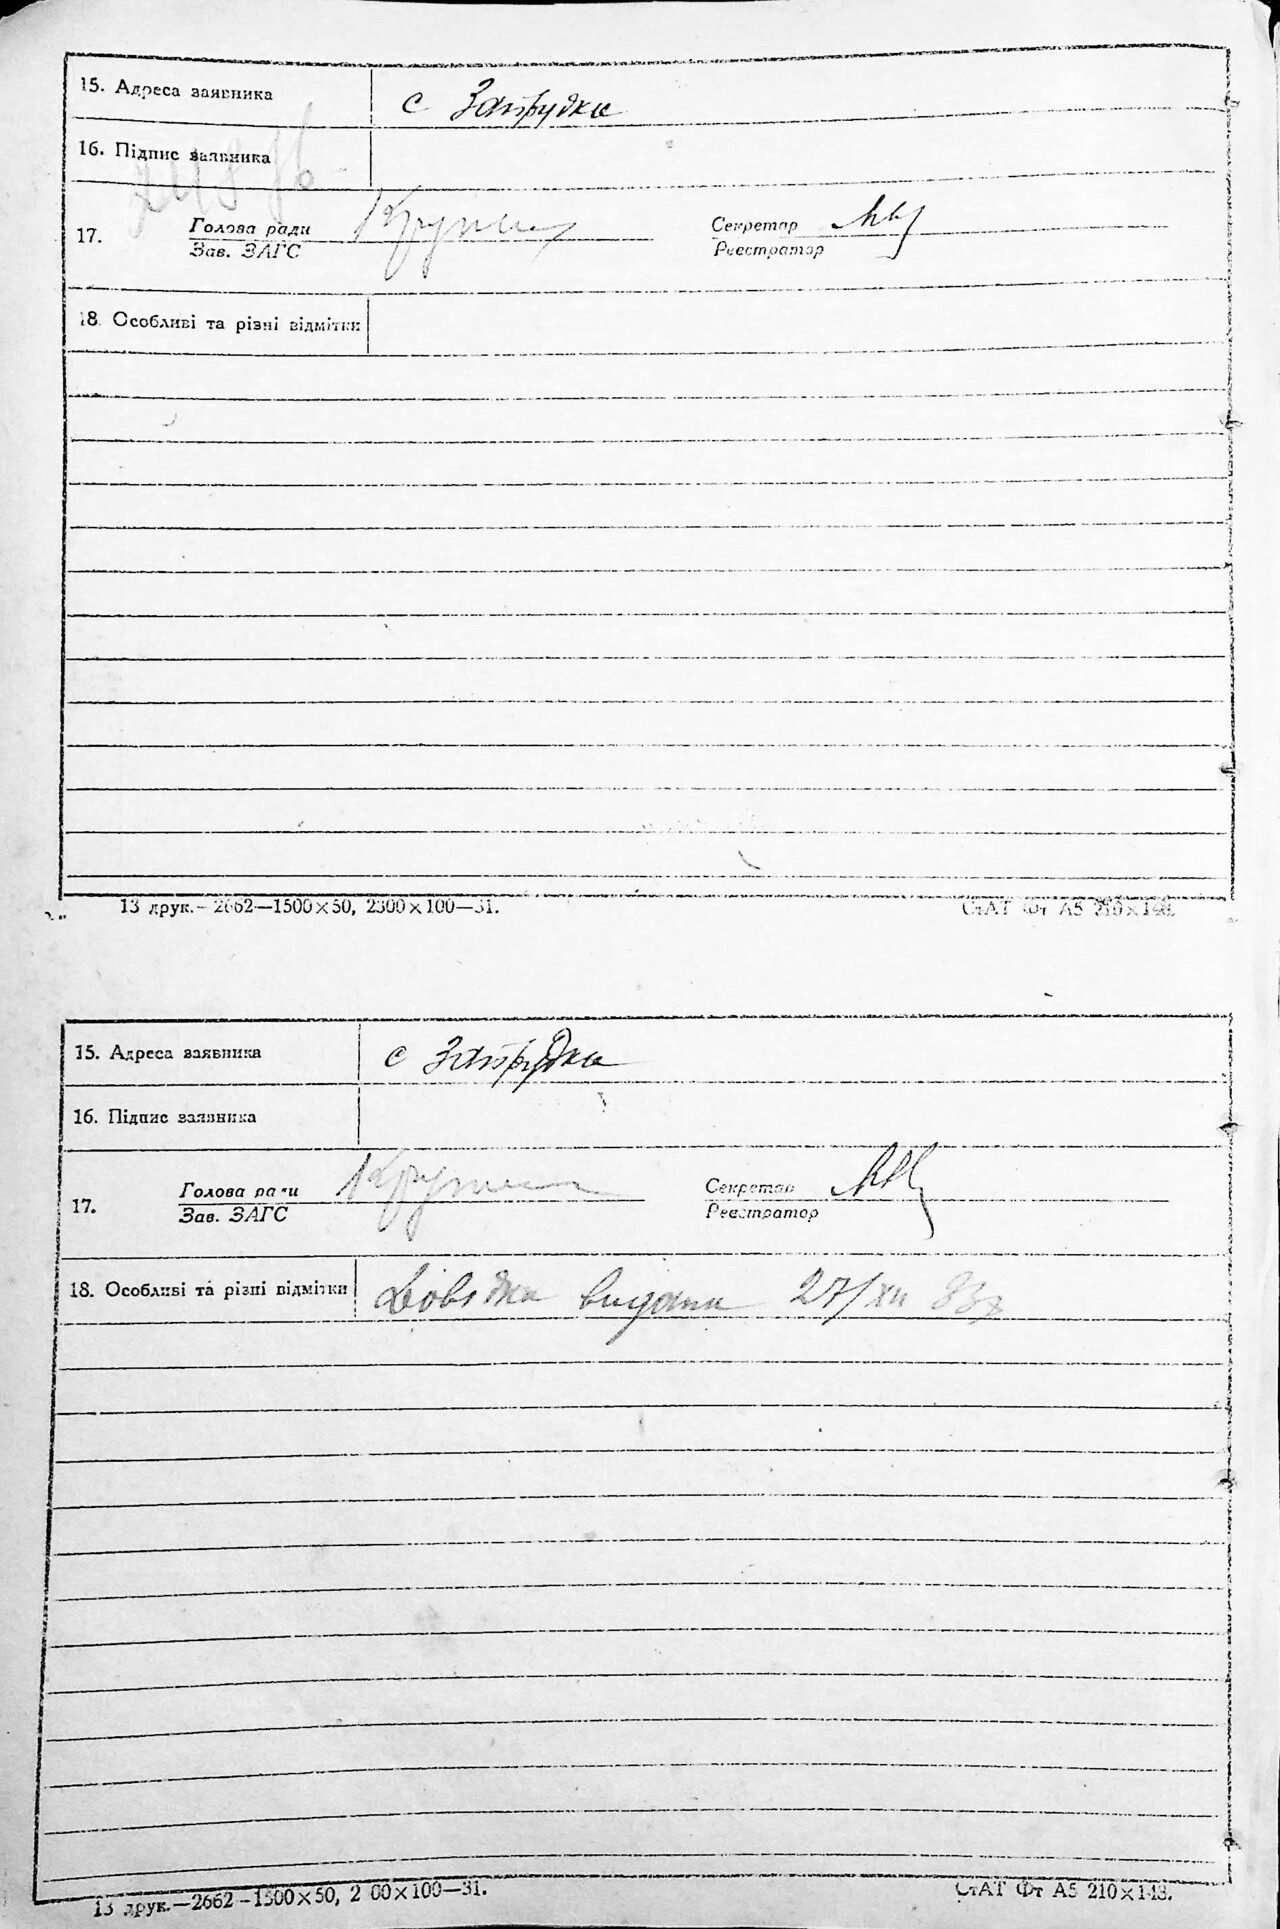 15. Адреса заявника с Загрудка
16. Підпис заявника
17. Голова ради Секретар
Зав. ЗАГС Реєстратор
18. Особливі та різні відмітки
13 друк.—2662—1500×50, 2300×100—31. СтАТ Фт А5 210×148.
15. Адреса заявника с Загрудка
16. Підпис заявника
17. Голова ради Секретар
Зав. ЗАГС Реєстратор
18. Особливі та різні відмітки Довідка видана 27/XII 83
13 друк.—2662—1500×50, 2 00×100—31. СтАТ Фт А5 210×148.